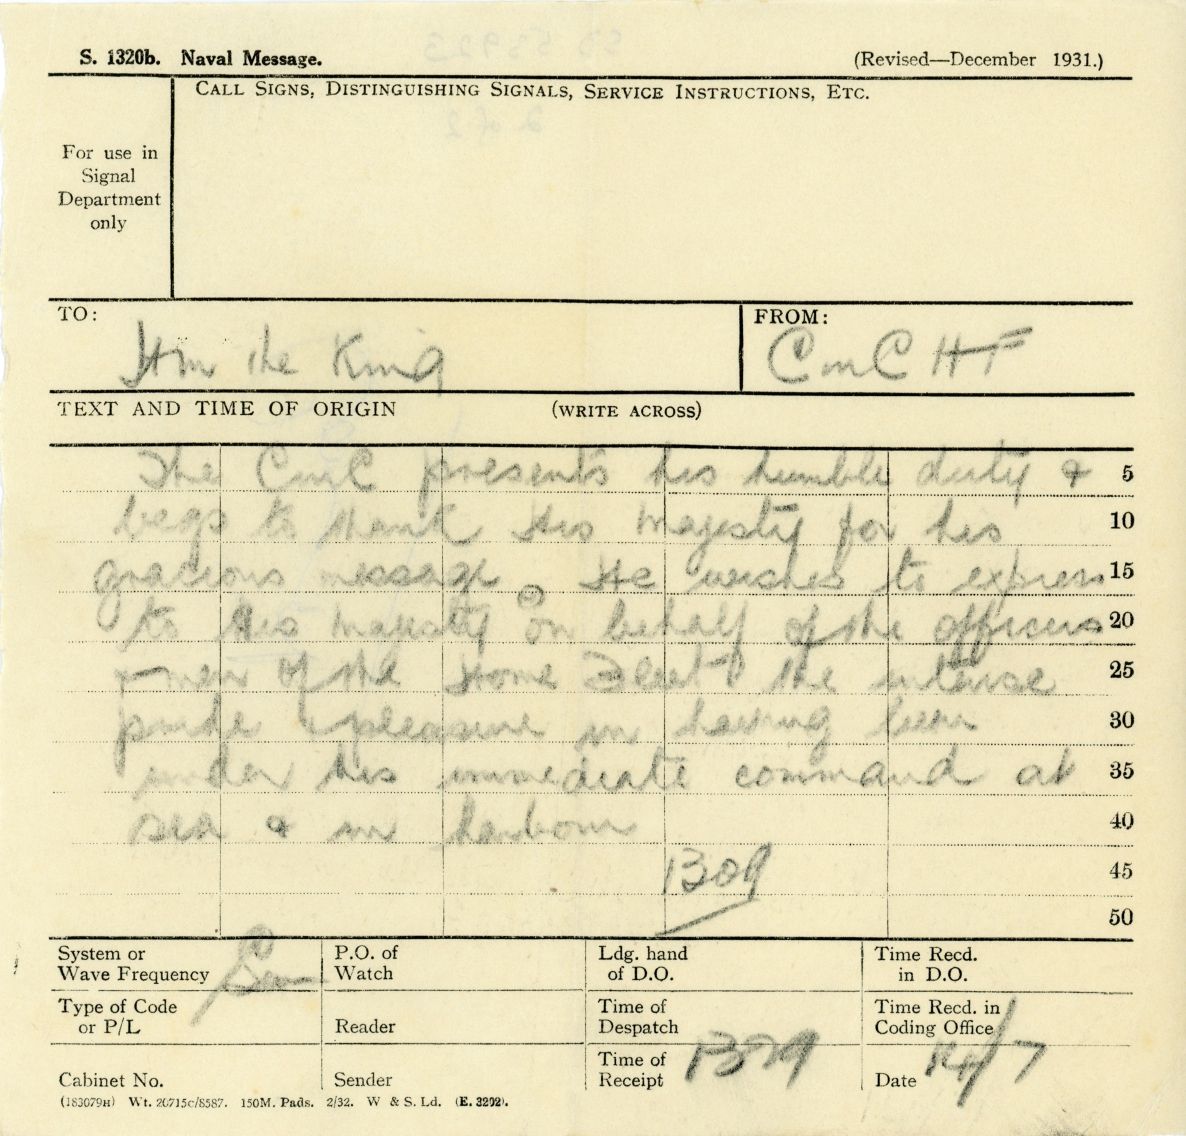 S. 1320b. Naval Message. (Revised—December 1931.)
CALL SIGNS, DISTINGUISHING SIGNALS, SERVICE INSTRUCTIONS, ETC.
For use in
Signal
Department
only
TO:
HM the King
FROM:
CinC HF
TEXT AND TIME OF ORIGIN (WRITE ACROSS)
The CinC presents his humble duty & 5
begs to thank His Majesty for his 10
gracious message. He wishes to express 15
to His Majesty on behalf of the officers 20
& men of the Home Fleet the intense 25
pride & pleasure in having been 30
under his immediate command at 35
sea & in harbour 40
1309 45
50
System or
Wave Frequency
P.O. of
Watch
Ldg. hand
of D.O.
Time Recd.
in D.O.
Type of Code
or P/L
Reader
Time of
Despatch
Time Recd. in
Coding Office
Cabinet No.
Sender
Time of
Receipt 1329
Date 14/7
(183079H) Wt. 20715c/8587. 150M. Pads. 2/32. W & S. Ld. (E. 3292).